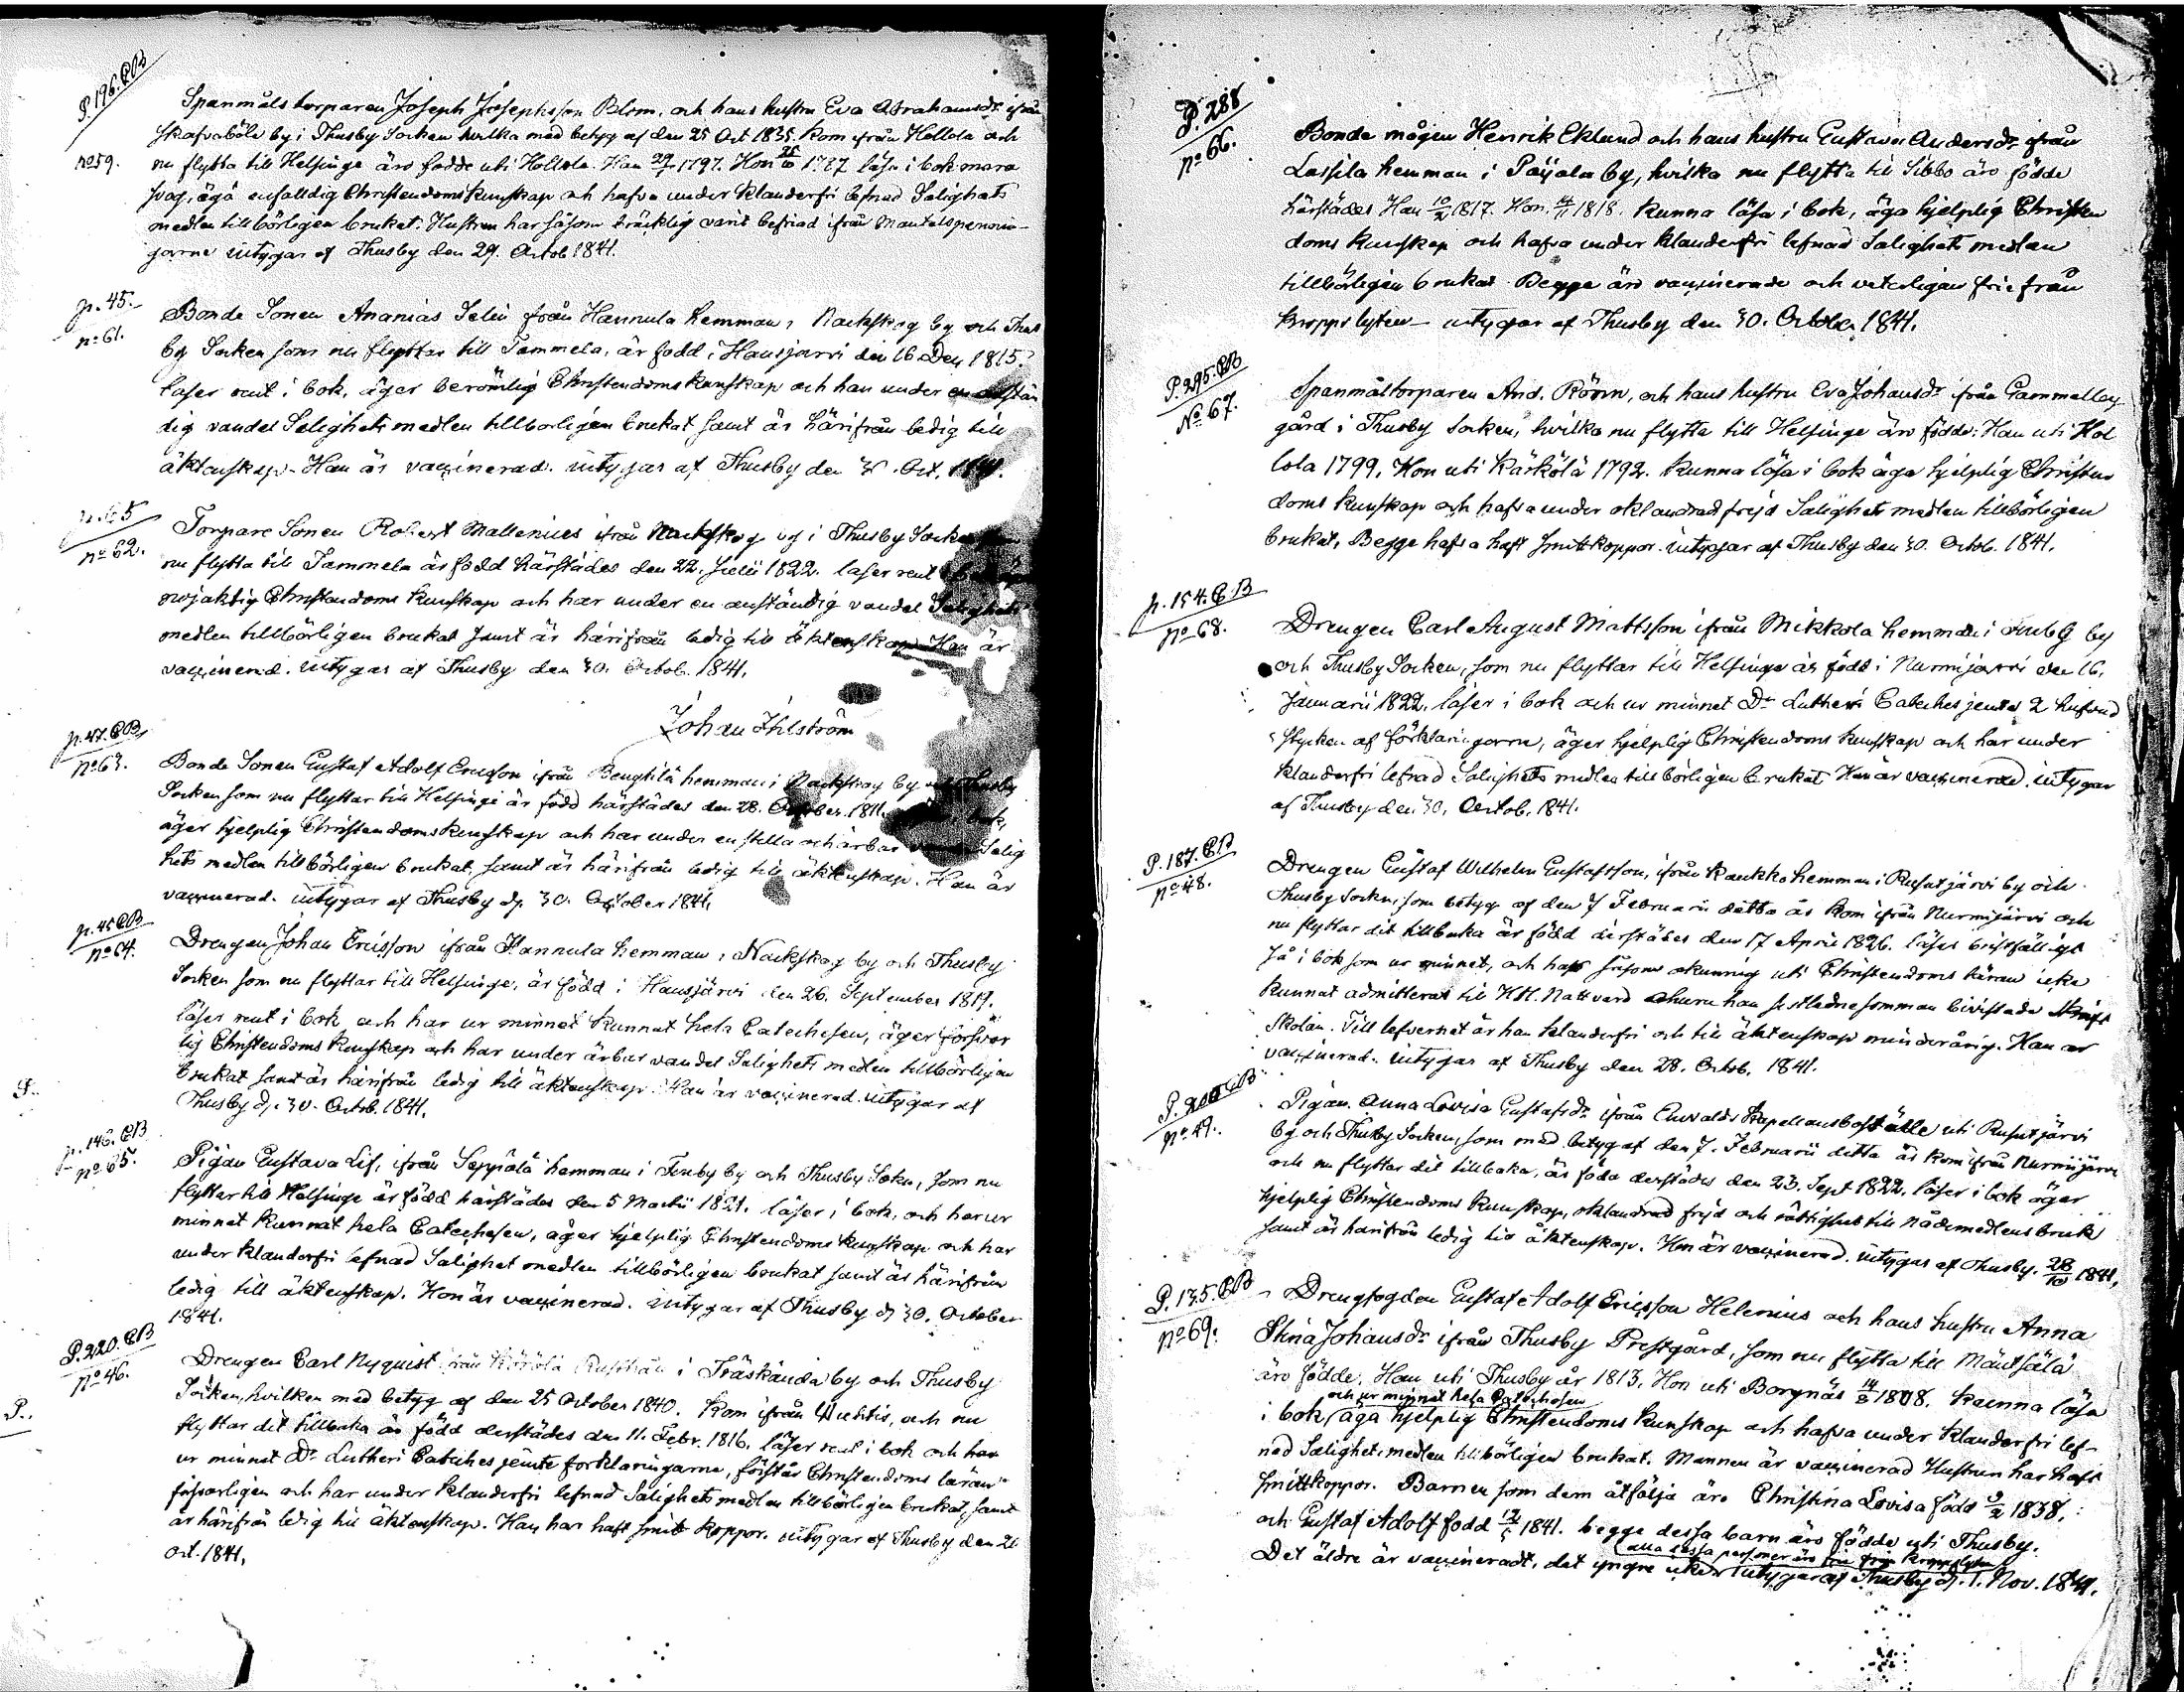 P. 196. CB
n⁰59.
Spanmåls torparen Joseph Josephsson Blom, och hans hustru Eva Abrahamsdr ifrån
Skafvaböle by i Thusby Socken hvilka med betyg af den 25 Oct 1835. kom från Hollola och
nu flytta till Helsinge äro födde uti Hollola. Han 1797. Hon 1787 läsa i bok
svag, äga enfalldig Christendoms Kunskap och hafva under klanderfri lefnad Salighets
medlen tillbörligen brukat. Hustrun har såsom bräcklig varit befriad ifrån Mantalspennin-
garne intygar af Thusby den 29. Octob 1841.
p. 45.
n⁰ 61.
Bonde Sonen Ananias Selin från Hannula hemman i Nackskog by och Thus
by Socken som nu flyttar till Tammela, är född i Hausjärvi den 16 1815.
läser rent i bok, äger berömlig Christendoms kunskap och han under en anstän
dig vandel Salighets medlen tillbörligen brukat samt är härifrån ledig till
äktenskap. Han är vaccinerad. intygar af Thusby den Oct. 1841.
p. 65
n⁰ 62.
Torpare Sonen Robert Mallenius ifrån Nackskog by i Thusby Socken
nu flytta till Tammela är född härstädes den 22. Julii 1822. läser rent
nöjaktig Christendoms Kunskap och har under en anständig vandel Salighets
medlen tillbörligen brukat samt är härifrån ledig till äktenskap Han är
vaccinerad. intygar af Thusby den 30. Octob. 1841.
Johan Ihlström
p. 47. CB
n⁰ 63.
Bonde Sonen Gustaf Adolf Ericsson ifrån Bengtilä hemman i Nackskog by och Thusby
Socken som nu flyttar till Helsinge är född härstädes den 28. October. 1811. bok,
äger hjelplig Christendoms kunskap och har under en stilla och ärbar Salig
hets medlen tillbörligen brukat, samt är härifrån ledig till äktenskap. Han är
vaccinerad. intygar af Thusby d. 30. October 1841.
p. 45 CB
n⁰ 64.
Drengen Johan Ericsson ifrån Hannula hemman i Nackskog by och Thusby
Socken som nu flyttar till Helsinge, är född i Hausjärvi den 26. September 1819.
läser rent i bok och har ur minnet kunnat hela Catechesen, äger försvar
lig Christendoms kunskap och har under ärbar vandel Salighets medlen tillbörligen
brukat samt är härifrån ledig till äktenskap. Han är vaccinerad. intygar af
Thusby d. 30. Octob. 1841.
p. 146. CB
n⁰ 65.
Pigan Gustava Lif, ifrån Seppälä hemman i Finby by och Thusby Sokn, som nu
flyttar till Helsinge är född härstädes den 5 Martii 1821. läser i bok, och har ur
minnet kunnat hela Catechesen, äger hjelplig Christendoms kunskap och har
under klanderfri lefnad Salighet medlen tillbörligen brukat samt är härifrån
ledig till äktenskap. Hon är vaccinerad. intygar af Thusby d. 30. October
1841.
P. 220. CB
n⁰ 46.
Drengen Carl Nyquist från Rusthåll i Träskända by och Thusby
Socken, hvilken med betyg af den 25 October 1840. kom ifrån Wichtis, och nu
flyttar dit tillbaka är född derstädes den 11. Febr. 1816. läser rent i bok och har
ur minnet Dr Lutheri Catiches jemte förklaringarne, förstår Christendoms läran
försvarligen och har under klanderfri lefnad Salighets medlen tillbörligen brukat, samt
är härifrån ledig till äktenskap. Han har haft Smitt koppor. intygar af Thusby den 26
oct. 1841.
P. 288
n⁰ 66.
Bonde mågen Henrik Eklund och hans hustru Gustava Andersdr ifrån
Lassila hemman i Päijala by, hvilka nu flytta till Sibbo äro födde
härstädes Han 10/2 1817. Hon 1818. kunna läsa i bok, äga hjelplig Christen
doms kunskap och hafva under klanderfri lefnad Salighets medlen
tillbörligen brukat. Begge äro vaccinerade och veterligen frie från
kropps lyten – intygar af Thusby den 30. October 1841.
P. 295. CB
N⁰ 67.
Spanmåltorparen And. Röörn, och hans hustru Eva Johansdr ifrån Gammelby
gård i Thusby socken, hvilka nu flytta till Helsinge äro födde. Han uti Hol
lola 1799. Hon uti Kärkölä 1792. kunna läsa i bok äga hjelplig Christen
doms kunskap och hafva under oklandrad frejd Salighets medlen tillbörligen
brukat, Begge hafva haft smittkoppor. intygar af Thusby den 30. Octob. 1841.
p. 154. CB
n⁰ 68.
Drengen Carl August Mattsson ifrån Mikkola hemman i by
och Thusby Socken, som nu flyttar till Helsinge är född i Nurmijärvi den 16.
Januarii 1822. läser i bok och ur minnet Dr Lutheri Catechesjemte 2 hufvud
stycken af förklaringarne, äger hjelplig Christendoms kunskap och har under
klanderfri lefnad Salighets medlen tillbörligen brukat Han är vaccinerad. intygar
af Thusby den 30. Octob. 1841.
P. 187. CB
n⁰ 48.
Drengen Gustaf Wilhelm Gustafsson, ifrån Kaukko hemman i Rusutjärvi by och
Thusby Socken, som betyg af den 7 Februarii detta år kom ifrån Nurmijärvi och
nu flyttar dit tillbaka är född derstädes den 17 April 1826. läser bristfälligt
så i bok som ur minnet, och har såsom okunnig uti Christendoms läran icke
kunnat admitteras till H.H. Nattvard ehuru han sistledne sommar bivistade Skrift
Skolan. Till lefvernet är han klanderfri och till äktenskap minderårig. Han är
vaccinerad. intygar af Thusby den 28. Octob. 1841.
P. 200 CB
n⁰ 49.
Pigan Anna Lovisa Gustafsdr ifrån Envalds Kapellansboställe uti Rusutjärvi
by och Thusby Socken, som med betyg af den 7. Februarii detta år kom ifrån Nurmijärvi
och nu flyttar dit tillbaka, är föda derstädes den 23. Sept 1822. läser i bok äger
hjelplig Christendoms kunskap, oklandrad frejd och rättighet till nådemedlens bruk
samt är härifrån ledig till äktenskap. Hon är vaccinerad. intygas af Thusby. 28/10 1841.
P. 135. CB
n⁰ 69.
Drengfogden Gustaf Adolf Ericsson Helenius och hans hustru Anna
Stina Johansdr ifrån Thusby Prestgård, som nu flytta till Mäntsälä
äro födde. Han uti Thusby år 1813. Hon uti Borgnäs 1808. kunna läsa
och ur minnet hela Catechesen
i bok, äga hjelplig Christendoms kunskap och hafva under klanderfri lef-
nad Salighets medlen tillbörligen brukat. Mannen är vaccinerad Hustrun har haft
Smittkoppor. Barnen som dem åtfölja äro Christina Lovisa född 9/2 1838.
och Gustaf Adolf född 1841. begge dessa barn äro födde uti Thusby.
alla dessa personer äro frie från kroppslyten
Det äldre är vaccineradt, det yngre icke. intygar af Thusby d. 1. Nov. 1841.